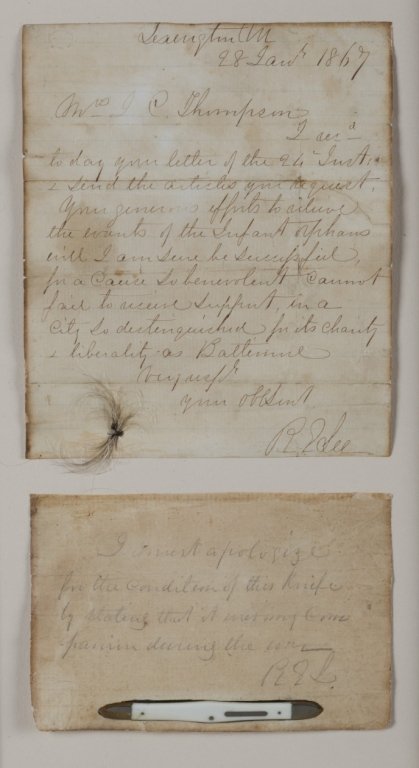 Lexington
28 Jany 1867
Mrs J. C. Thompson
I recd
to day your letter of the 24 Inst:
& send the articles you request.
Your generous efforts to relieve
the wants of the Infant orphans
will I am sure be successful,
for a cause so benevolent cannot
fail to receive support, in a
City so distinguished for its charity
& liberality as Baltimore
Very respy
your obt Servt
R E Lee
I must apologize
for the condition of this Knife
by stating that it was my Com
panion during the war
R E L.